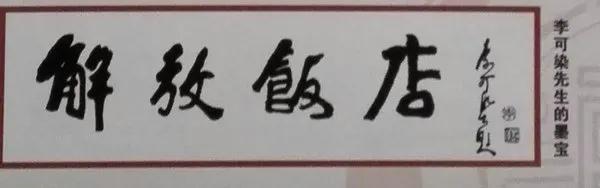 解放飯店
李可染题
李可染先生的墨宝